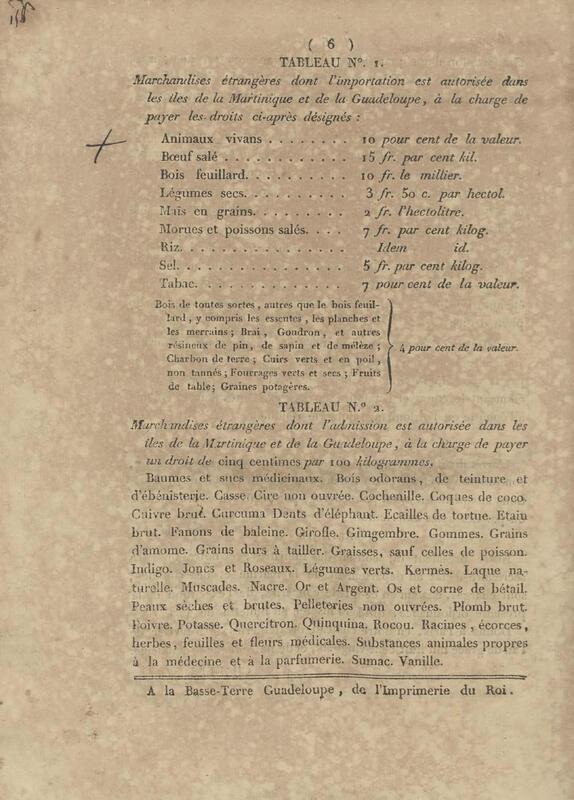 ( 6 )
TABLEAU N°. 1.
Marchandises étrangères dont l'importation est autorisée dans
les îles de la Martinique et de la Guadeloupe, à la charge de
payer les droits ci-après désignés :
Animaux vivans . . . . . . . . 10 pour cent de la valeur.
Bœuf salé . . . . . . . . . . . 15 fr. par cent kil.
Bois feuillard. . . . . . . . . . 10 fr. le millier.
Légumes secs. . . . . . . . . . 3 fr. 50 c. par hectol.
Maïs en grains. . . . . . . . . 2 fr. l'hectolitre.
Morues et poissons salés. . . . 7 fr. par cent kilog.
Riz. . . . . . . . . . . . . . . Idem id.
Sel. . . . . . . . . . . . . . . 5 fr. par cent kilog.
Tabac. . . . . . . . . . . . . . 7 pour cent de la valeur.
Bois de toutes sortes, autres que le bois feuil-
lard, y compris les essentes, les planches et
les merrains ; Brai, Goudron, et autres
résineux de pin, de sapin et de mélèze ;
Charbon de terre ; Cuirs verts et en poil,
non tannés ; Fourrages verts et secs ; Fruits
de table; Graines potagères.
4 pour cent de la valeur.
TABLEAU N.° 2.
Marchandises étrangères dont l'admission est autorisée dans les
îles de la Martinique et de la Guadeloupe, à la charge de payer
un droit de cinq centimes par 100 kilogrammes.
Baumes et sucs médicinaux. Bois odorans, de teinture et
d'ébénisterie. Casse. Cire non ouvrée. Cochenille. Coques de coco.
Cuivre brut. Curcuma Dents d'éléphant. Ecailles de tortue. Etain
brut. Fanons de baleine. Girofle. Gimgembre. Gommes. Grains
d'amome. Grains durs à tailler. Graisses, sauf celles de poisson.
Indigo. Joncs et Roseaux. Légumes verts. Kermès. Laque na-
turelle. Muscades. Nacre. Or et Argent. Os et corne de bétail.
Peaux sèches et brutes. Pelleteries non ouvrées. Plomb brut.
Poivre. Potasse. Quercitron. Quinquina. Rocou. Racines, écorces,
herbes, feuilles et fleurs médicales. Substances animales propres
à la médecine et à la parfumerie. Sumac. Vanille.
A la Basse-Terre Guadeloupe, de l'Imprimerie du Roi.